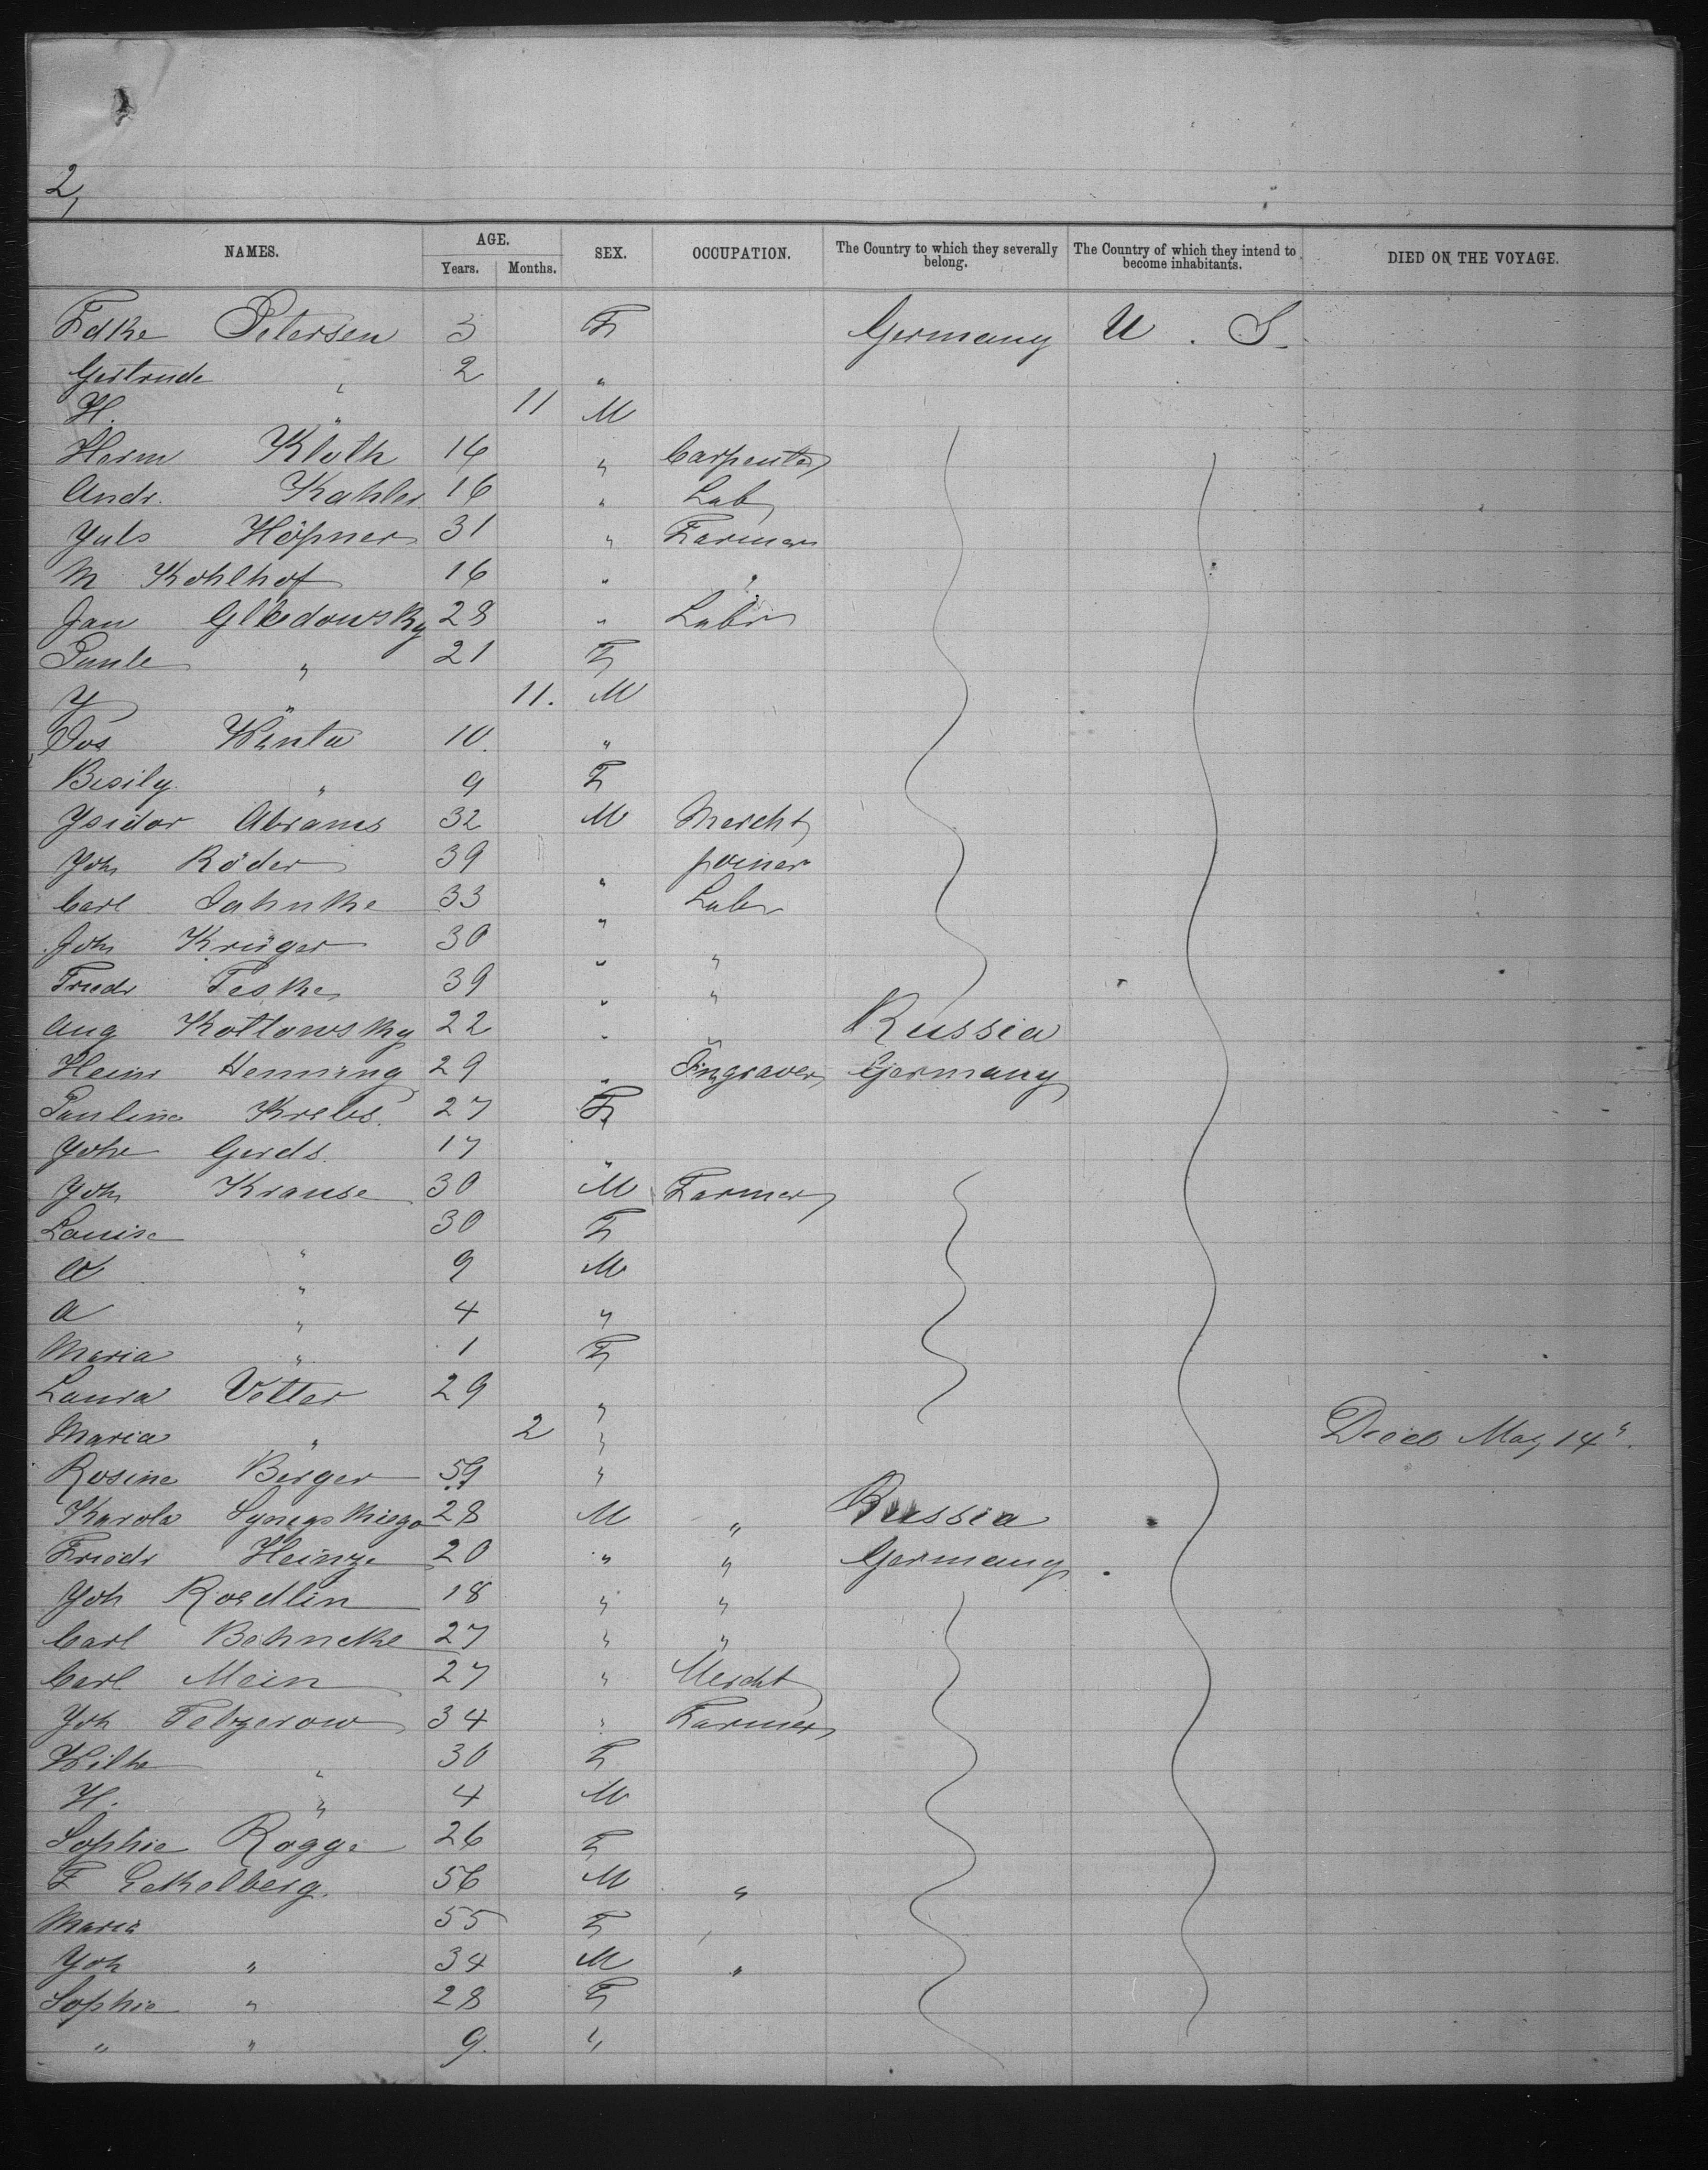 2,
NAMES. AGE. SEX. OCCUPATION. The Country to which they severally belong. The Country of which they intend to become inhabitants. DIED ON THE VOYAGE.
Years. Months.
Petersen 3 F Germany U. S.
Gertrude " 2 "
H. " 11 M
Herm Kloth 14 " Carpenter
Andr. Kahler 16 " Lab
Juls Höpner 31 " Farmer
M Kohlhof 16 " "
Jan 28 " Labr
21 F
Y " 11. M
Jos 10. "
" 9 F
Ysidor Abrams 32 M Mercht
Joh Röder 39 " joiner
Carl Jahnke 33 " Labr
Joh Krüger 30 " "
Friedr Teske 39 " "
Aug Kotlowsky 22 " " Russia
Heinr Henning 29 " Engraver Germany
Pauline Krebs. 27 F
Johe Gerds. 17 "
Joh Krause 30 M Farmer
Louise " 30 F
" 9 M
A " 4 "
Maria " 1 F
Laura Vetter 29 "
Maria " 2 " Died May 14"
Rosine Berger 59 "
Karola 28 M " Russia
Friedr Heinze 20 " " Germany
Joh Roedlin 18 " "
Carl Behncke 27 " "
Carl Mein 27 " Mercht
Joh Tetzerow 34 " Farmer
Wilhe " 30 F
H. " 4 M
Sophie Rogge 26 F
F Eckelberg. 56 M "
Maria 55 F
Joh " 34 M "
Sophie " 28 F
" " 9. "